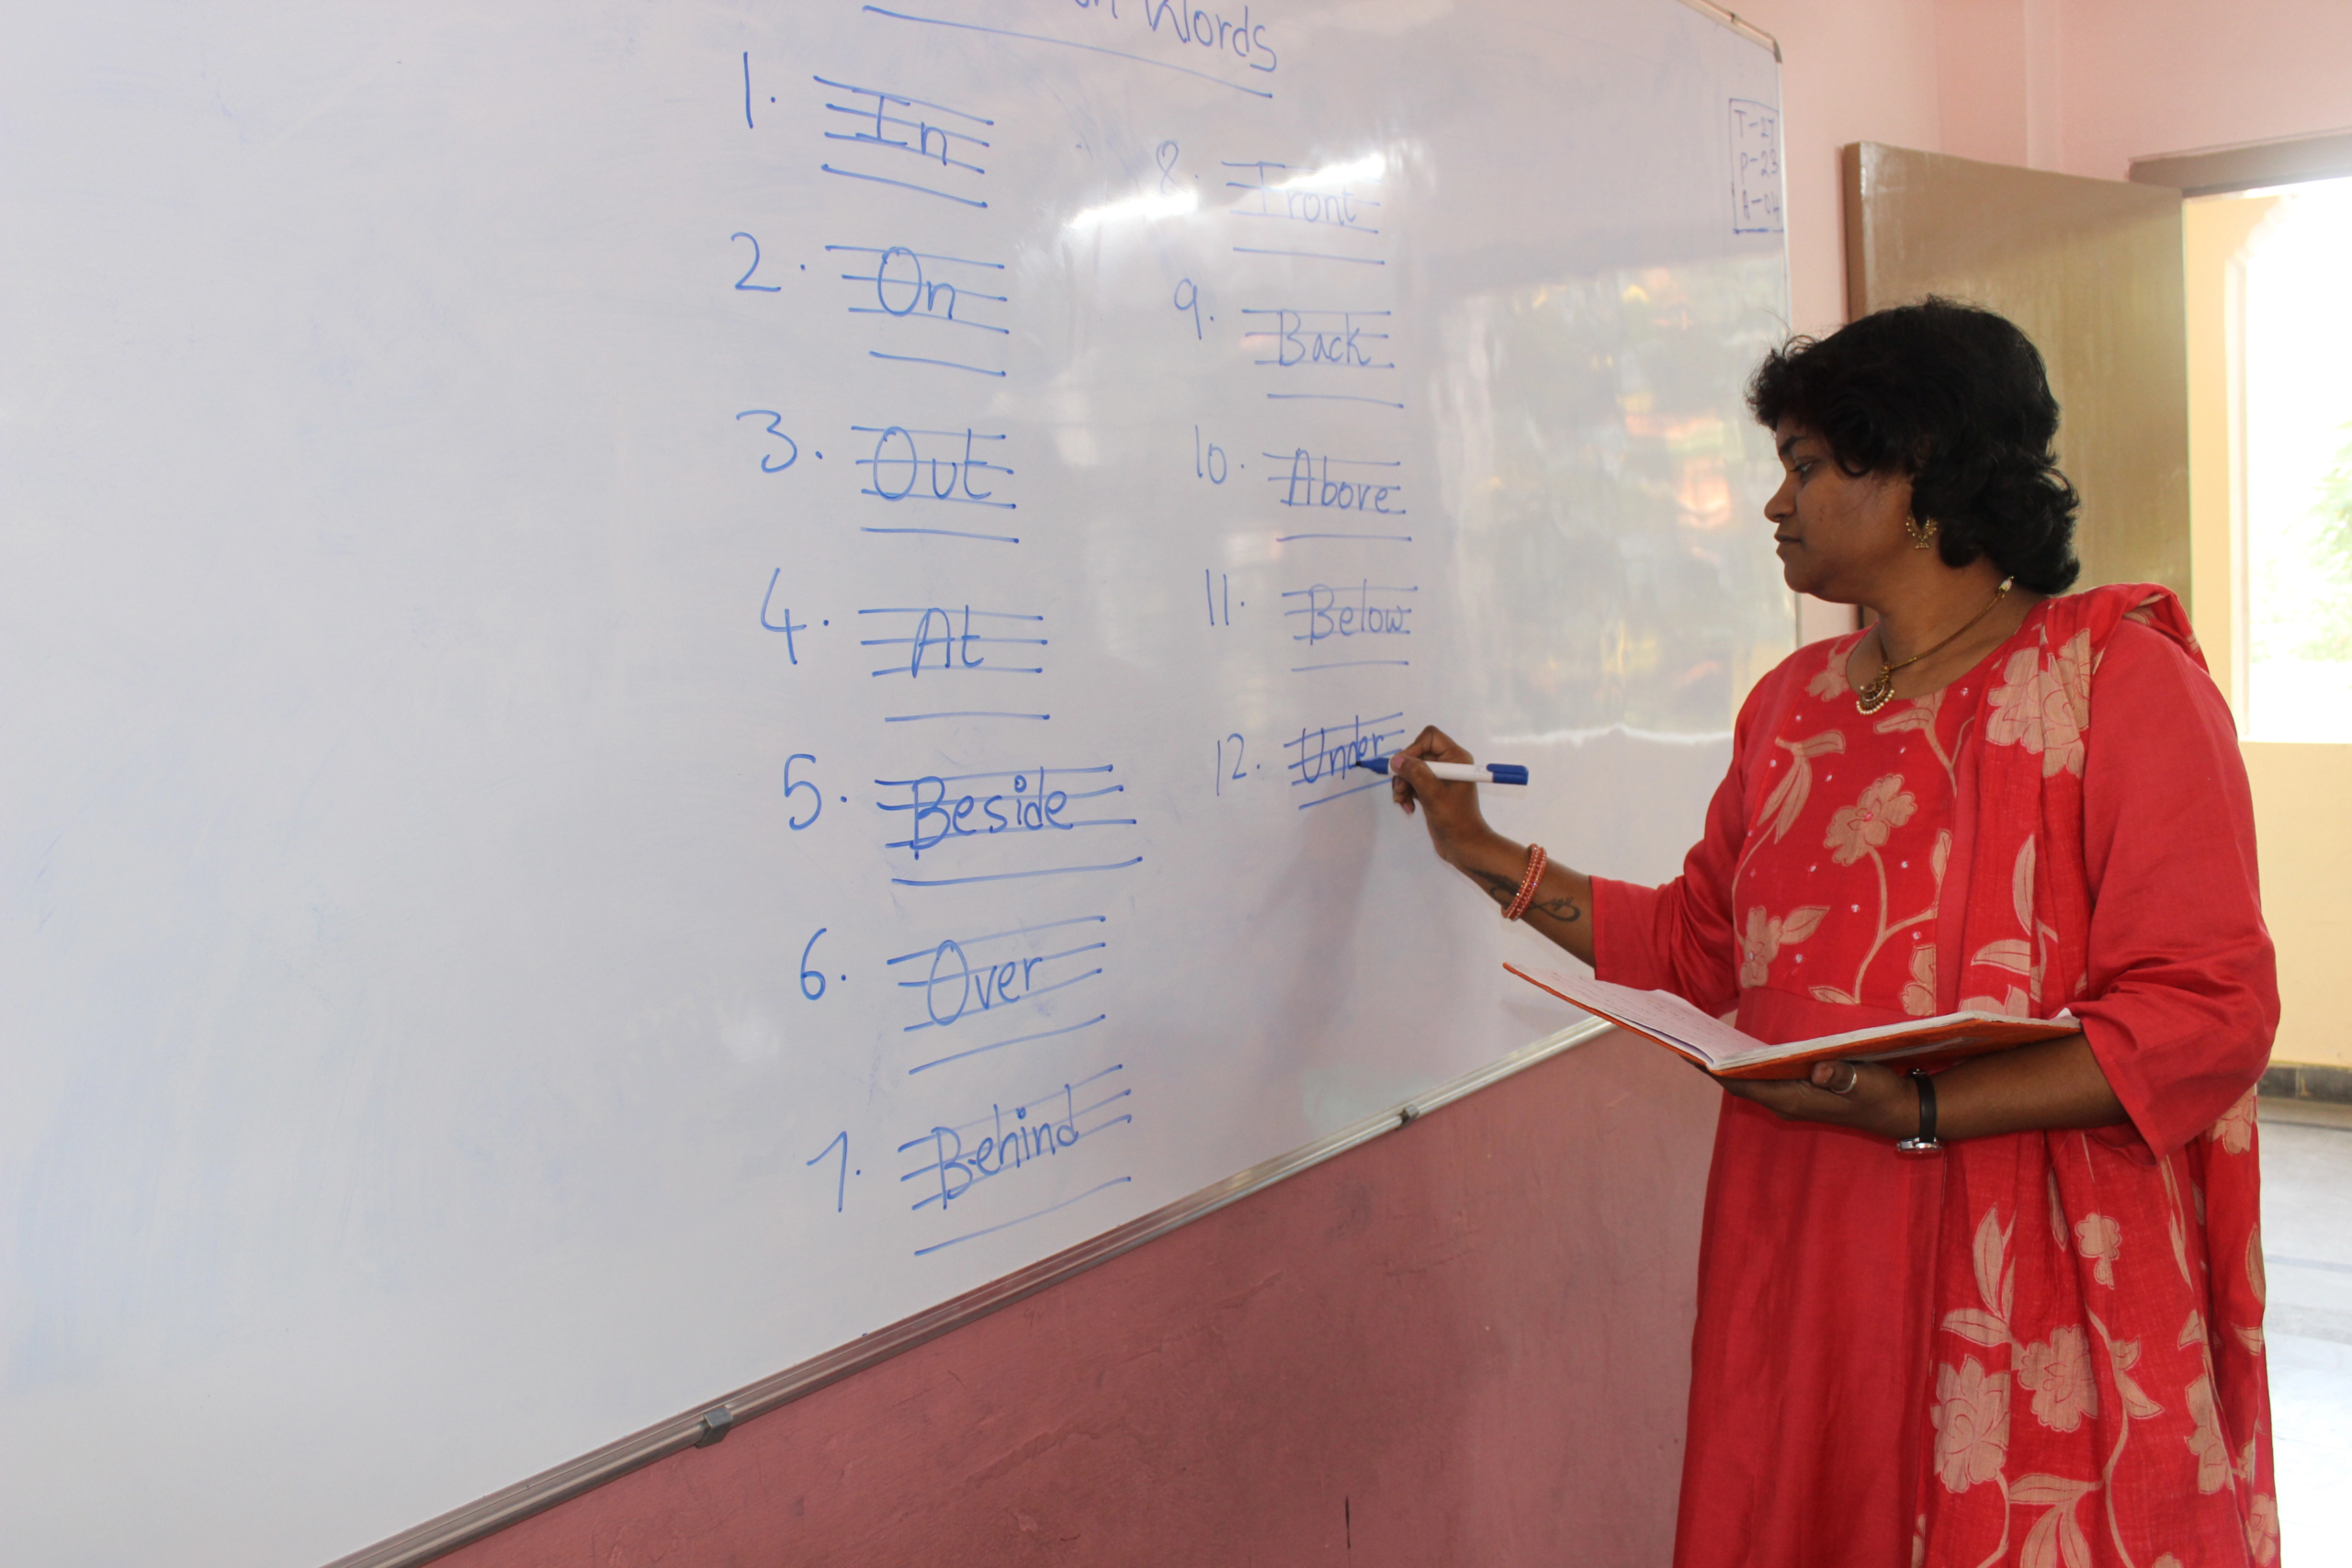 Words
1. In
2. On
3. Out
4. At
5. Beside
6. Over
7. Behind
8. Front
9. Back
10. Above
11. Below
12. Under
T-27
P-23
A-04